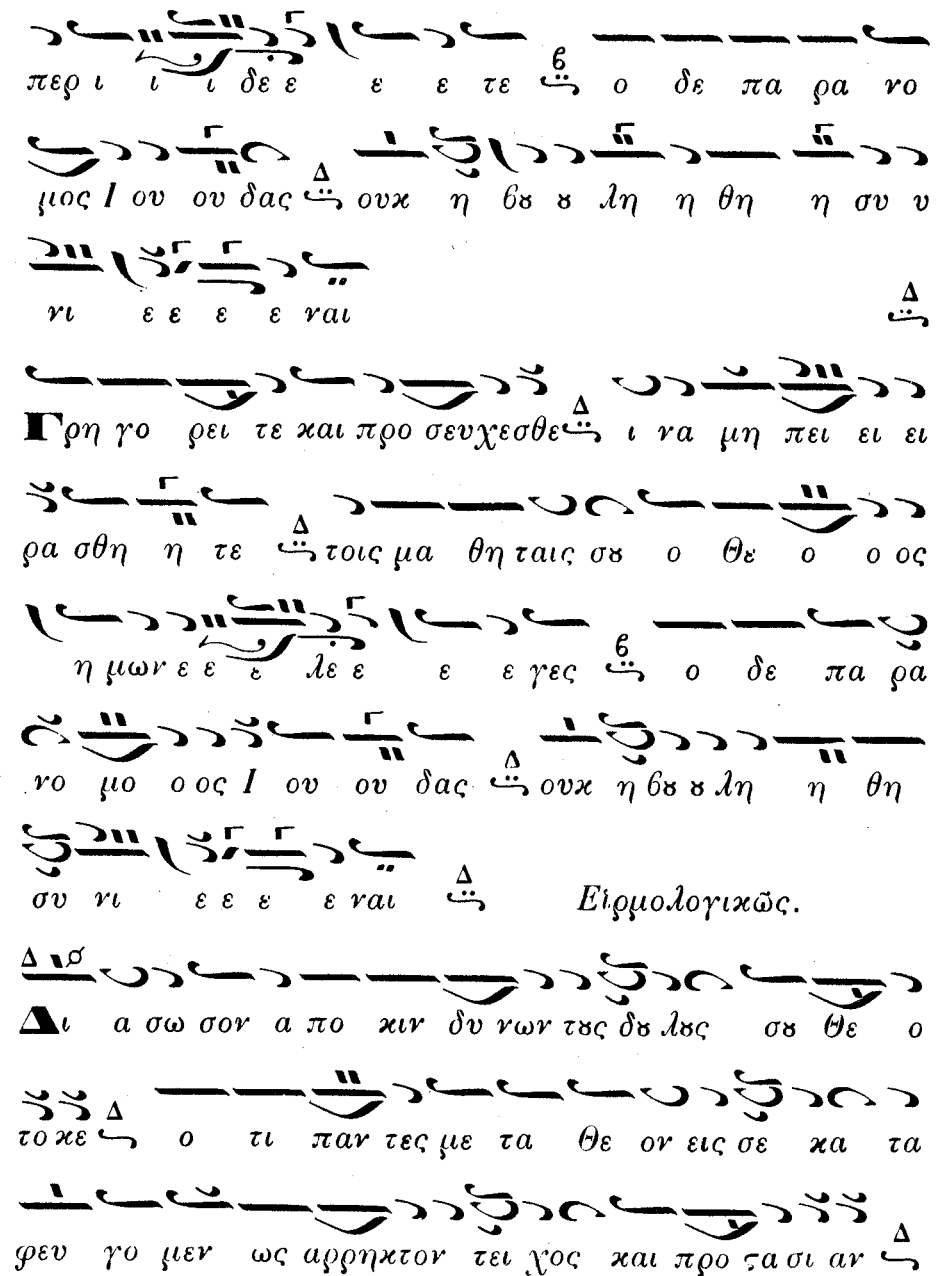 περ ι ι ι δε ε ε ε τε ϐ ο δε πα ρα νο
μος Ι ου ου δας Δ ουκ η βȣ ȣ λη η θη η συ υ
νι ε ε ε ε ναι Δ
Γρη γο ρει τε και προ σευχεσθε Δ ι να μη πει ει ει
ρα σθη η τε Δ τοις μα θη ταις σȣ ο Θε ο ο ος
η μων ε ε ε λε ε ε ε γες ϐ ο δε πα ρα
νο μο ο ος Ι ου ου δας Δ ουκ η βȣ ȣ λη η θη
συ νι ε ε ε ε ναι Δ Εἱρμολογικῶς.
Δ
Δι α σω σον α πο κιν δυ νων τȣς δȣ λȣς σȣ Θε ο
το κε Δ ο τι παν τες με τα Θε ον εις σε κα τα
φευ γο μεν ως αρρηκτον τει χος και προ ϛα σι αν Δ